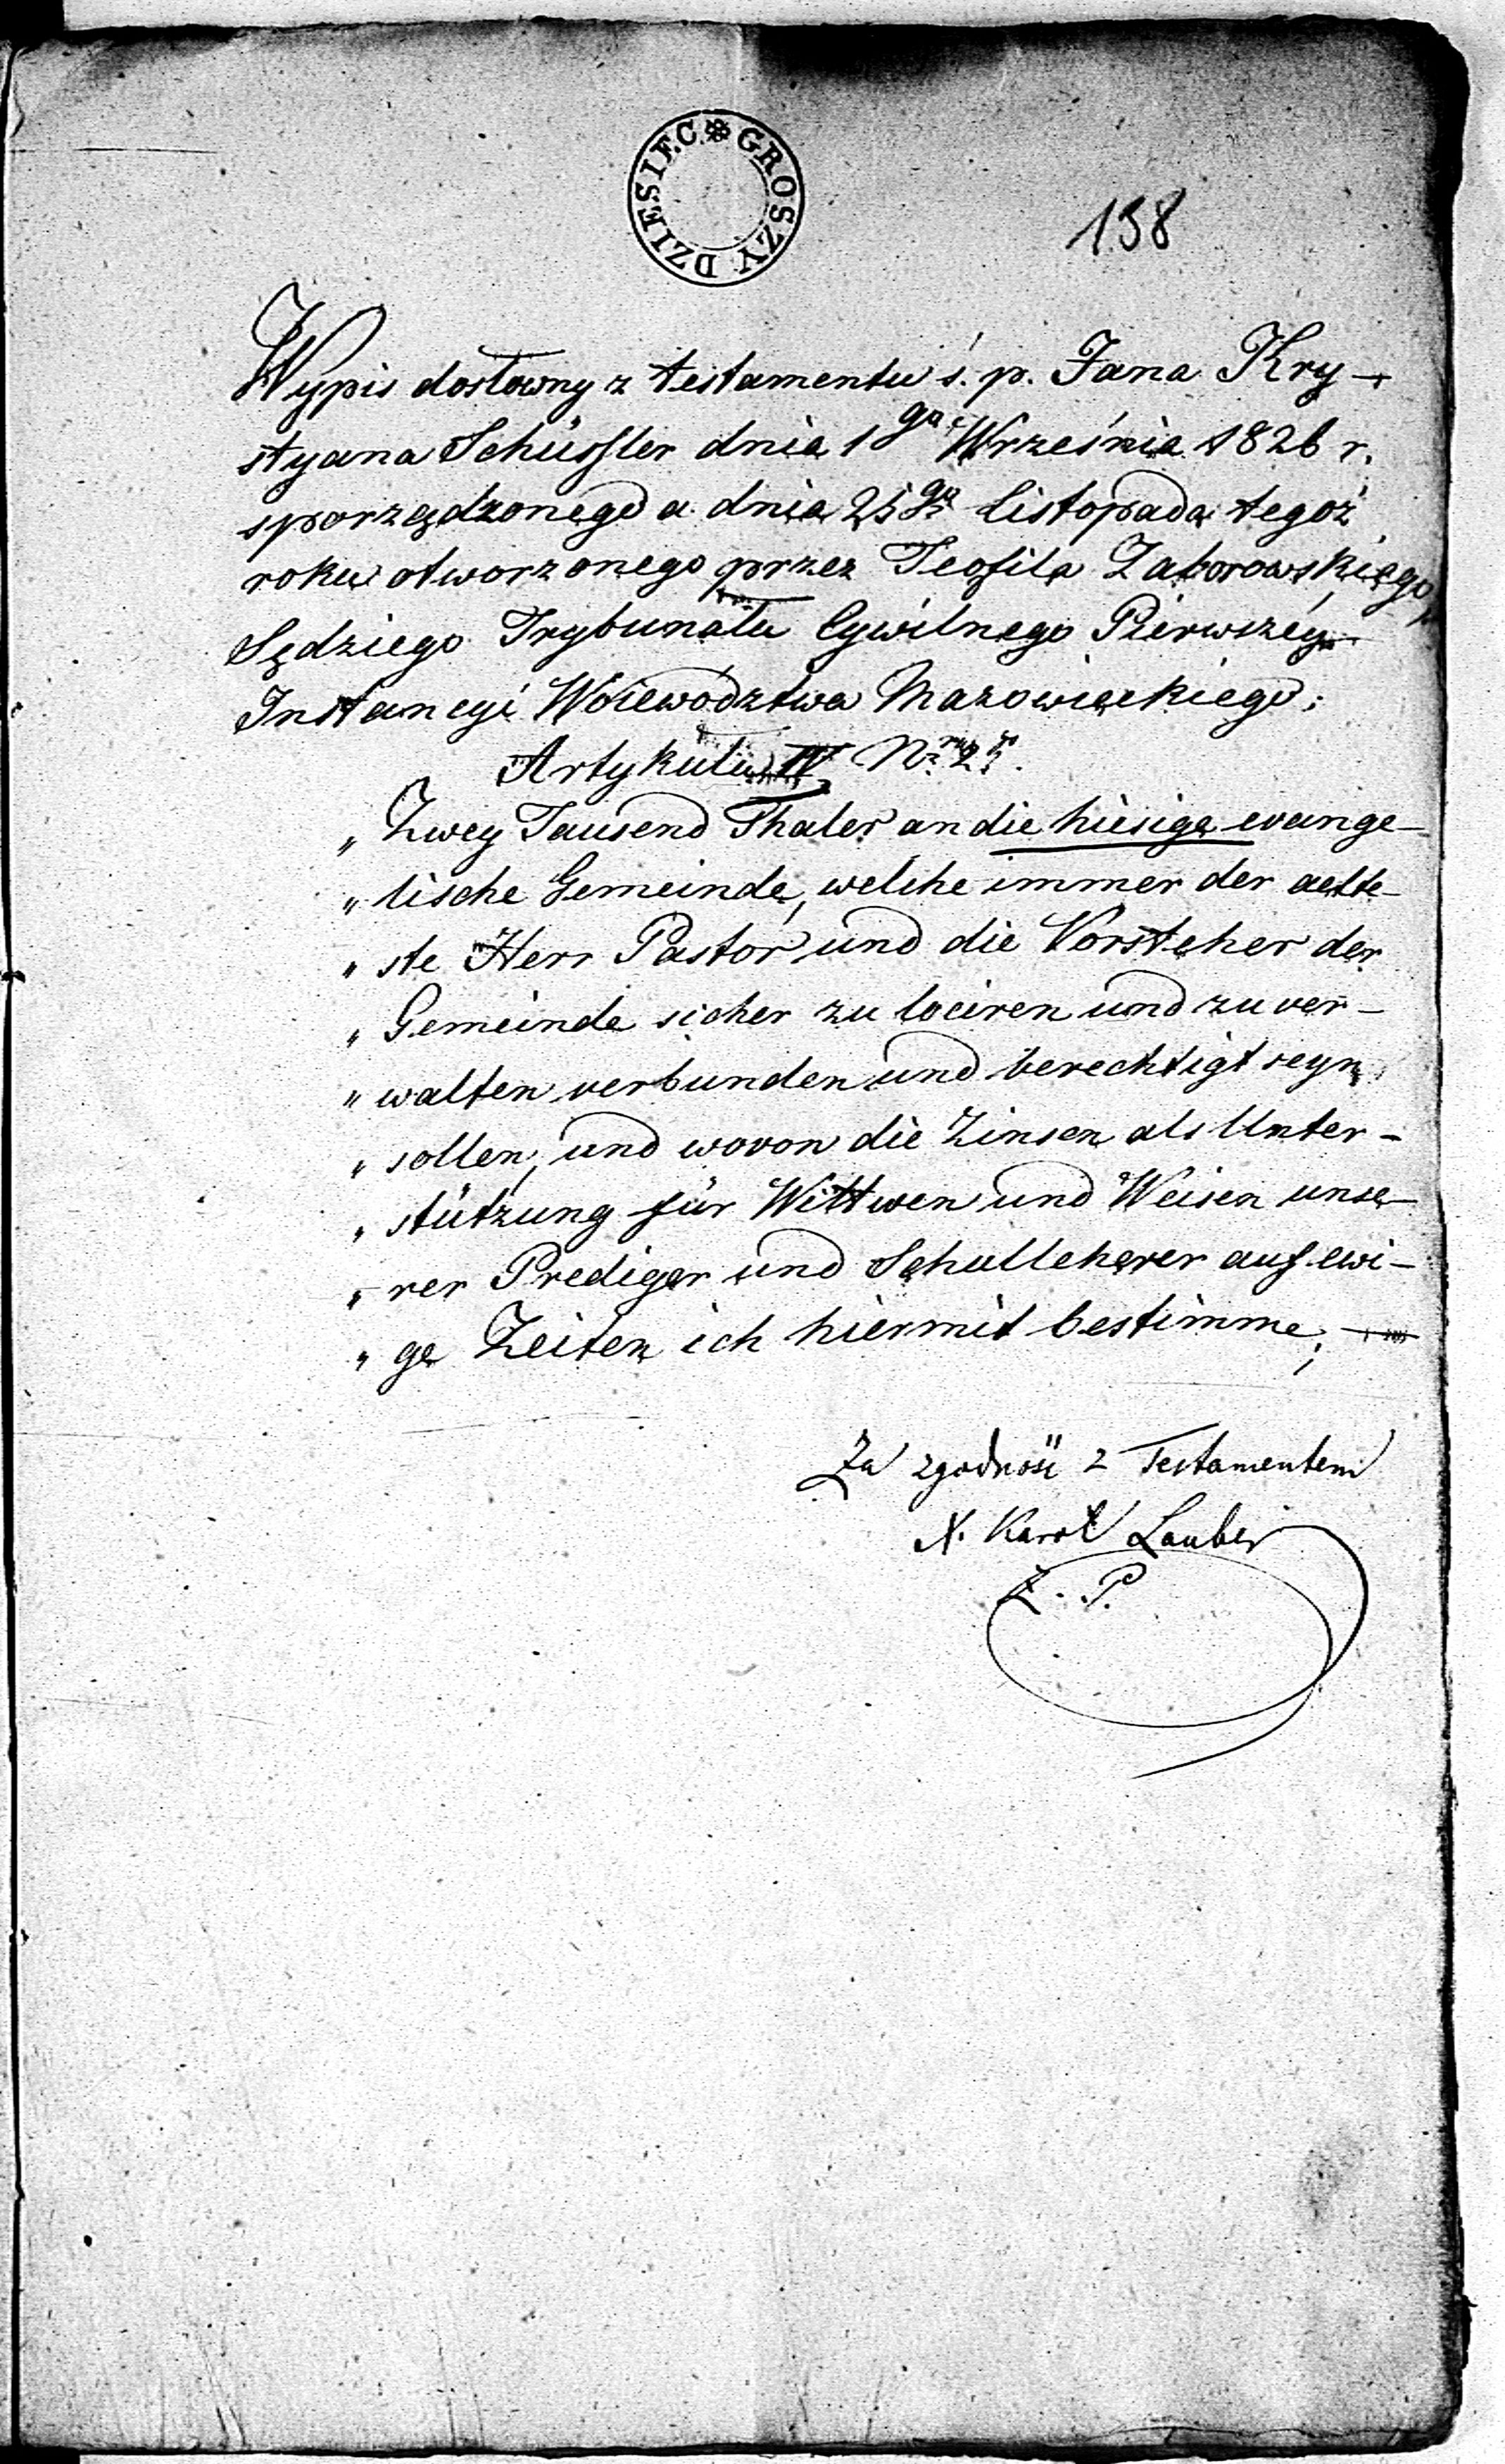 DZIESIĘC GROSZY
138
Wypis dosłowny z testamentu ś. p. Jana Kry-
styana Schüssler dnia 1go Września 1826 r.
sporządzonego a dnia 25go Listopada tegoż
roku otworzonego przez Teofila Zaborowskiego,
Sędziego Trybunału Cywilnego Pierwszéy
Instancyi Woiewództwa Mazowieckiego;
Artykułu IV Nr
„ Zwey Tausend Thaler an die hiesige evange-
„ lische Gemeinde, welche immer der aelte-
„ ste Herr Pastor und die Vorsteher der
„ Gemeinde sicher zu lociren und zu ver-
„ walten verbunden und berechtigt seyn
„ sollen, und wovon die Zinsen als Unter-
„ stützung für Wittwen und Weisen unse-
„ rer Prediger und Schullehrer auf ewi-
„ ge Zeiten ich hiermit bestimme;
Za zgodność z Testamentem
X. Karol Lauber